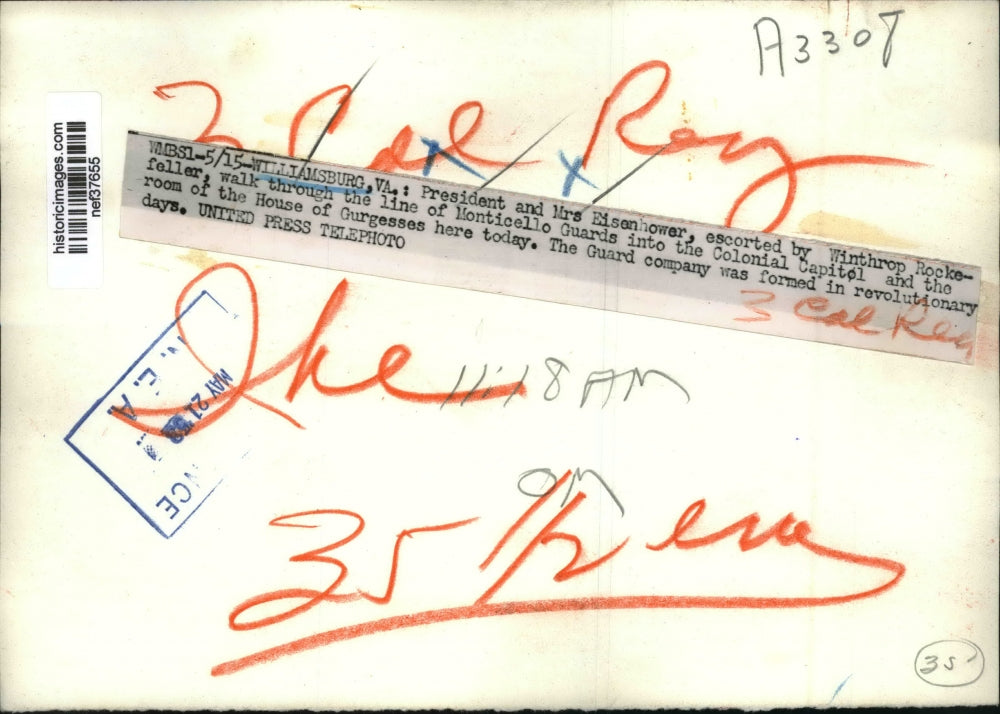 A3307
3 Col Reg
historicimages.com
nef37655
WMBS1-5/15-WILLIAMSBURG,VA.: President and Mrs Eisenhower, escorted by Winthrop Rocke-
feller, walk through the line of Monticello Guards into the Colonial Capitol and the
room of the House of Gurgesses here today. The Guard company was formed in revolutionary
days. UNITED PRESS TELEPHOTO
3 Col Reg
Ike
11:18 AM
N. E. A
MAY 21
NCE
OM
35
35